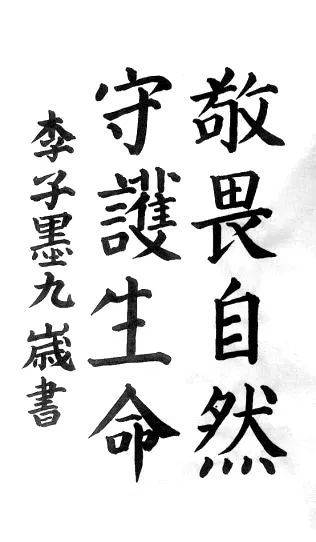 敬畏自然
守護生命
李子墨九歲書